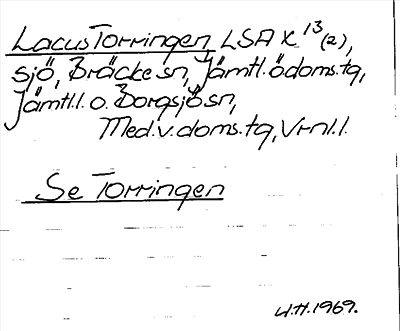 Lacus Torringen LSA K 13 (2),
sjö, Bräcke sn, Jämtl. ö doms. tg,
Jämtl. l. o. Borgsjö sn,
Med. v. doms. tg, Vrnl. l.
Se Torringen
U.H. 1969.